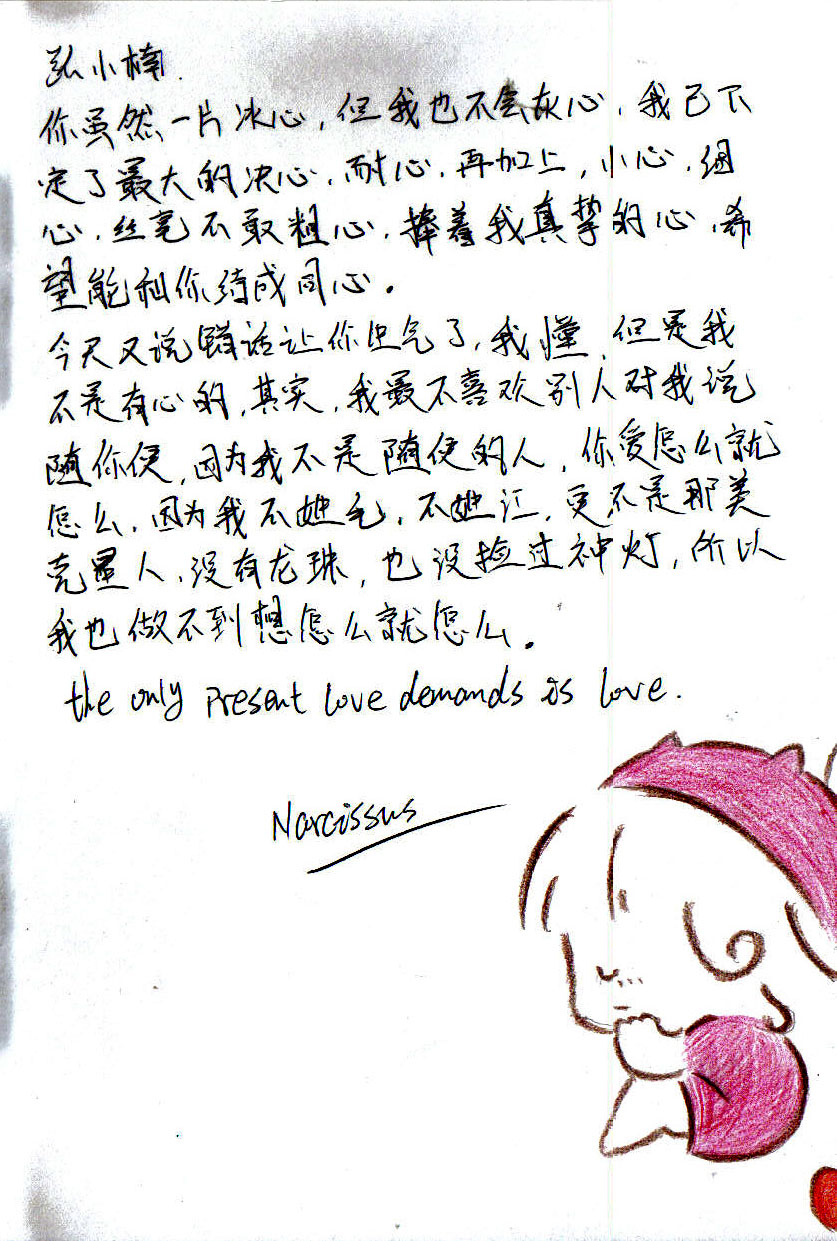 弘小楠.
你虽然一片冰心,但我也不会灰心,我已下
定了最大的决心,耐心,再加上,小心,细
心,丝毫不敢粗心,捧着我真挚的心,希
望能和你结成同心。
今天又说错话让你生气了,我懂,但是我
不是有心的,其实,我最不喜欢别人对我说
随你便,因为我不是随便的人,你爱怎么就
怎么,因为我不姓毛,不姓江,更不是那美
克星人,没有龙珠,也没捡过神灯,所以
我也做不到想怎么就怎么。
the only present love demands is love.
Narcissus